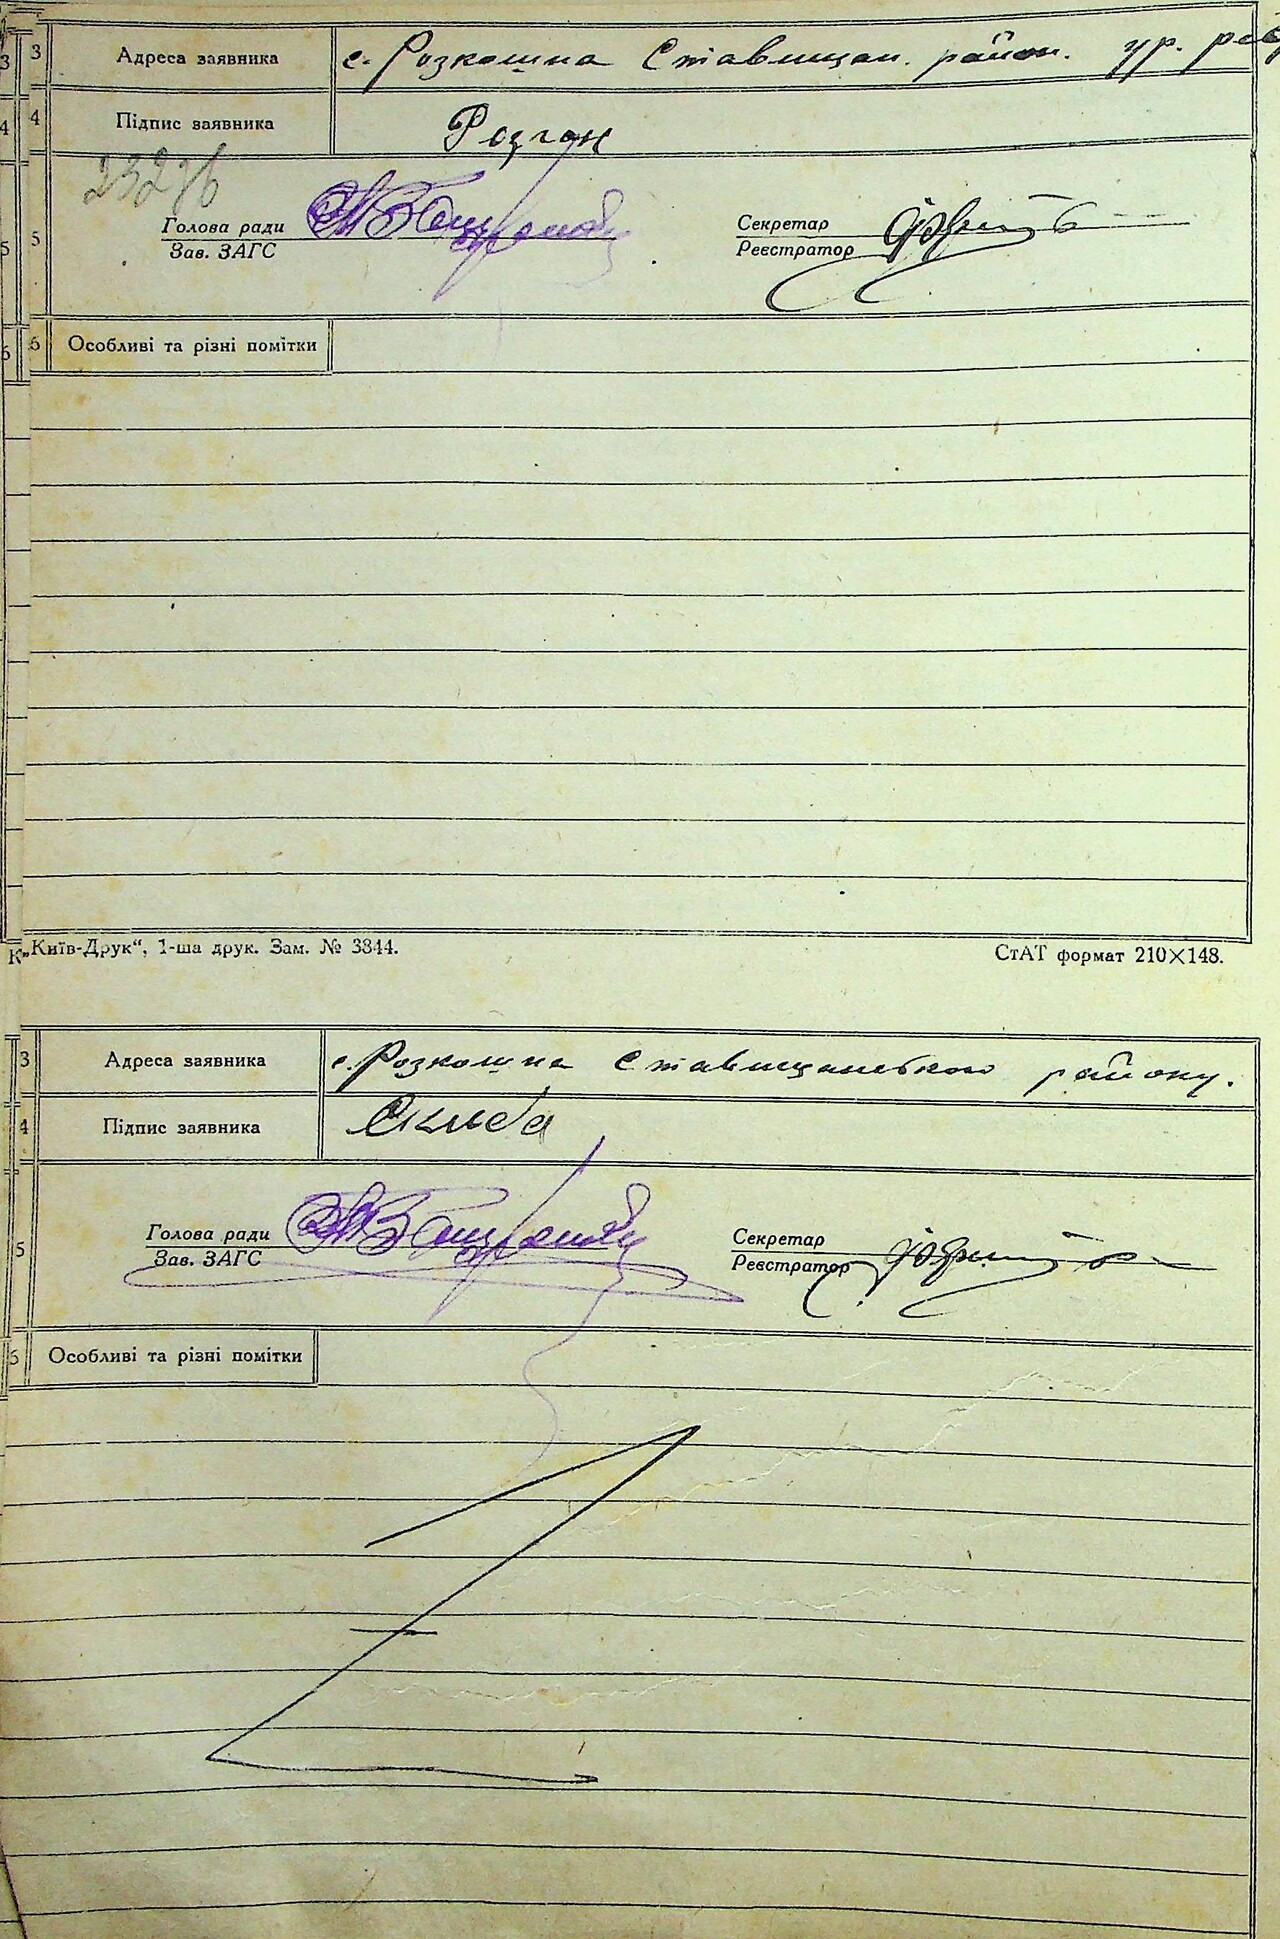 3 3 Адреса заявника с. Розкошна Ставищан. район. ур.
4 4 Підпис заявника Розгон
Голова ради Секретар
5 5
Зав. ЗАГС Реєстратор
6 6 Особливі та різні помітки
К„Київ-Друк“, 1-ша друк. Зам. № 3844. СтАТ формат 210×148.
3 Адреса заявника с. Розкошна Ставищанського району.
4 Підпис заявника Скиба
Голова ради Секретар
5
Зав. ЗАГС Реєстратор
6 Особливі та різні помітки